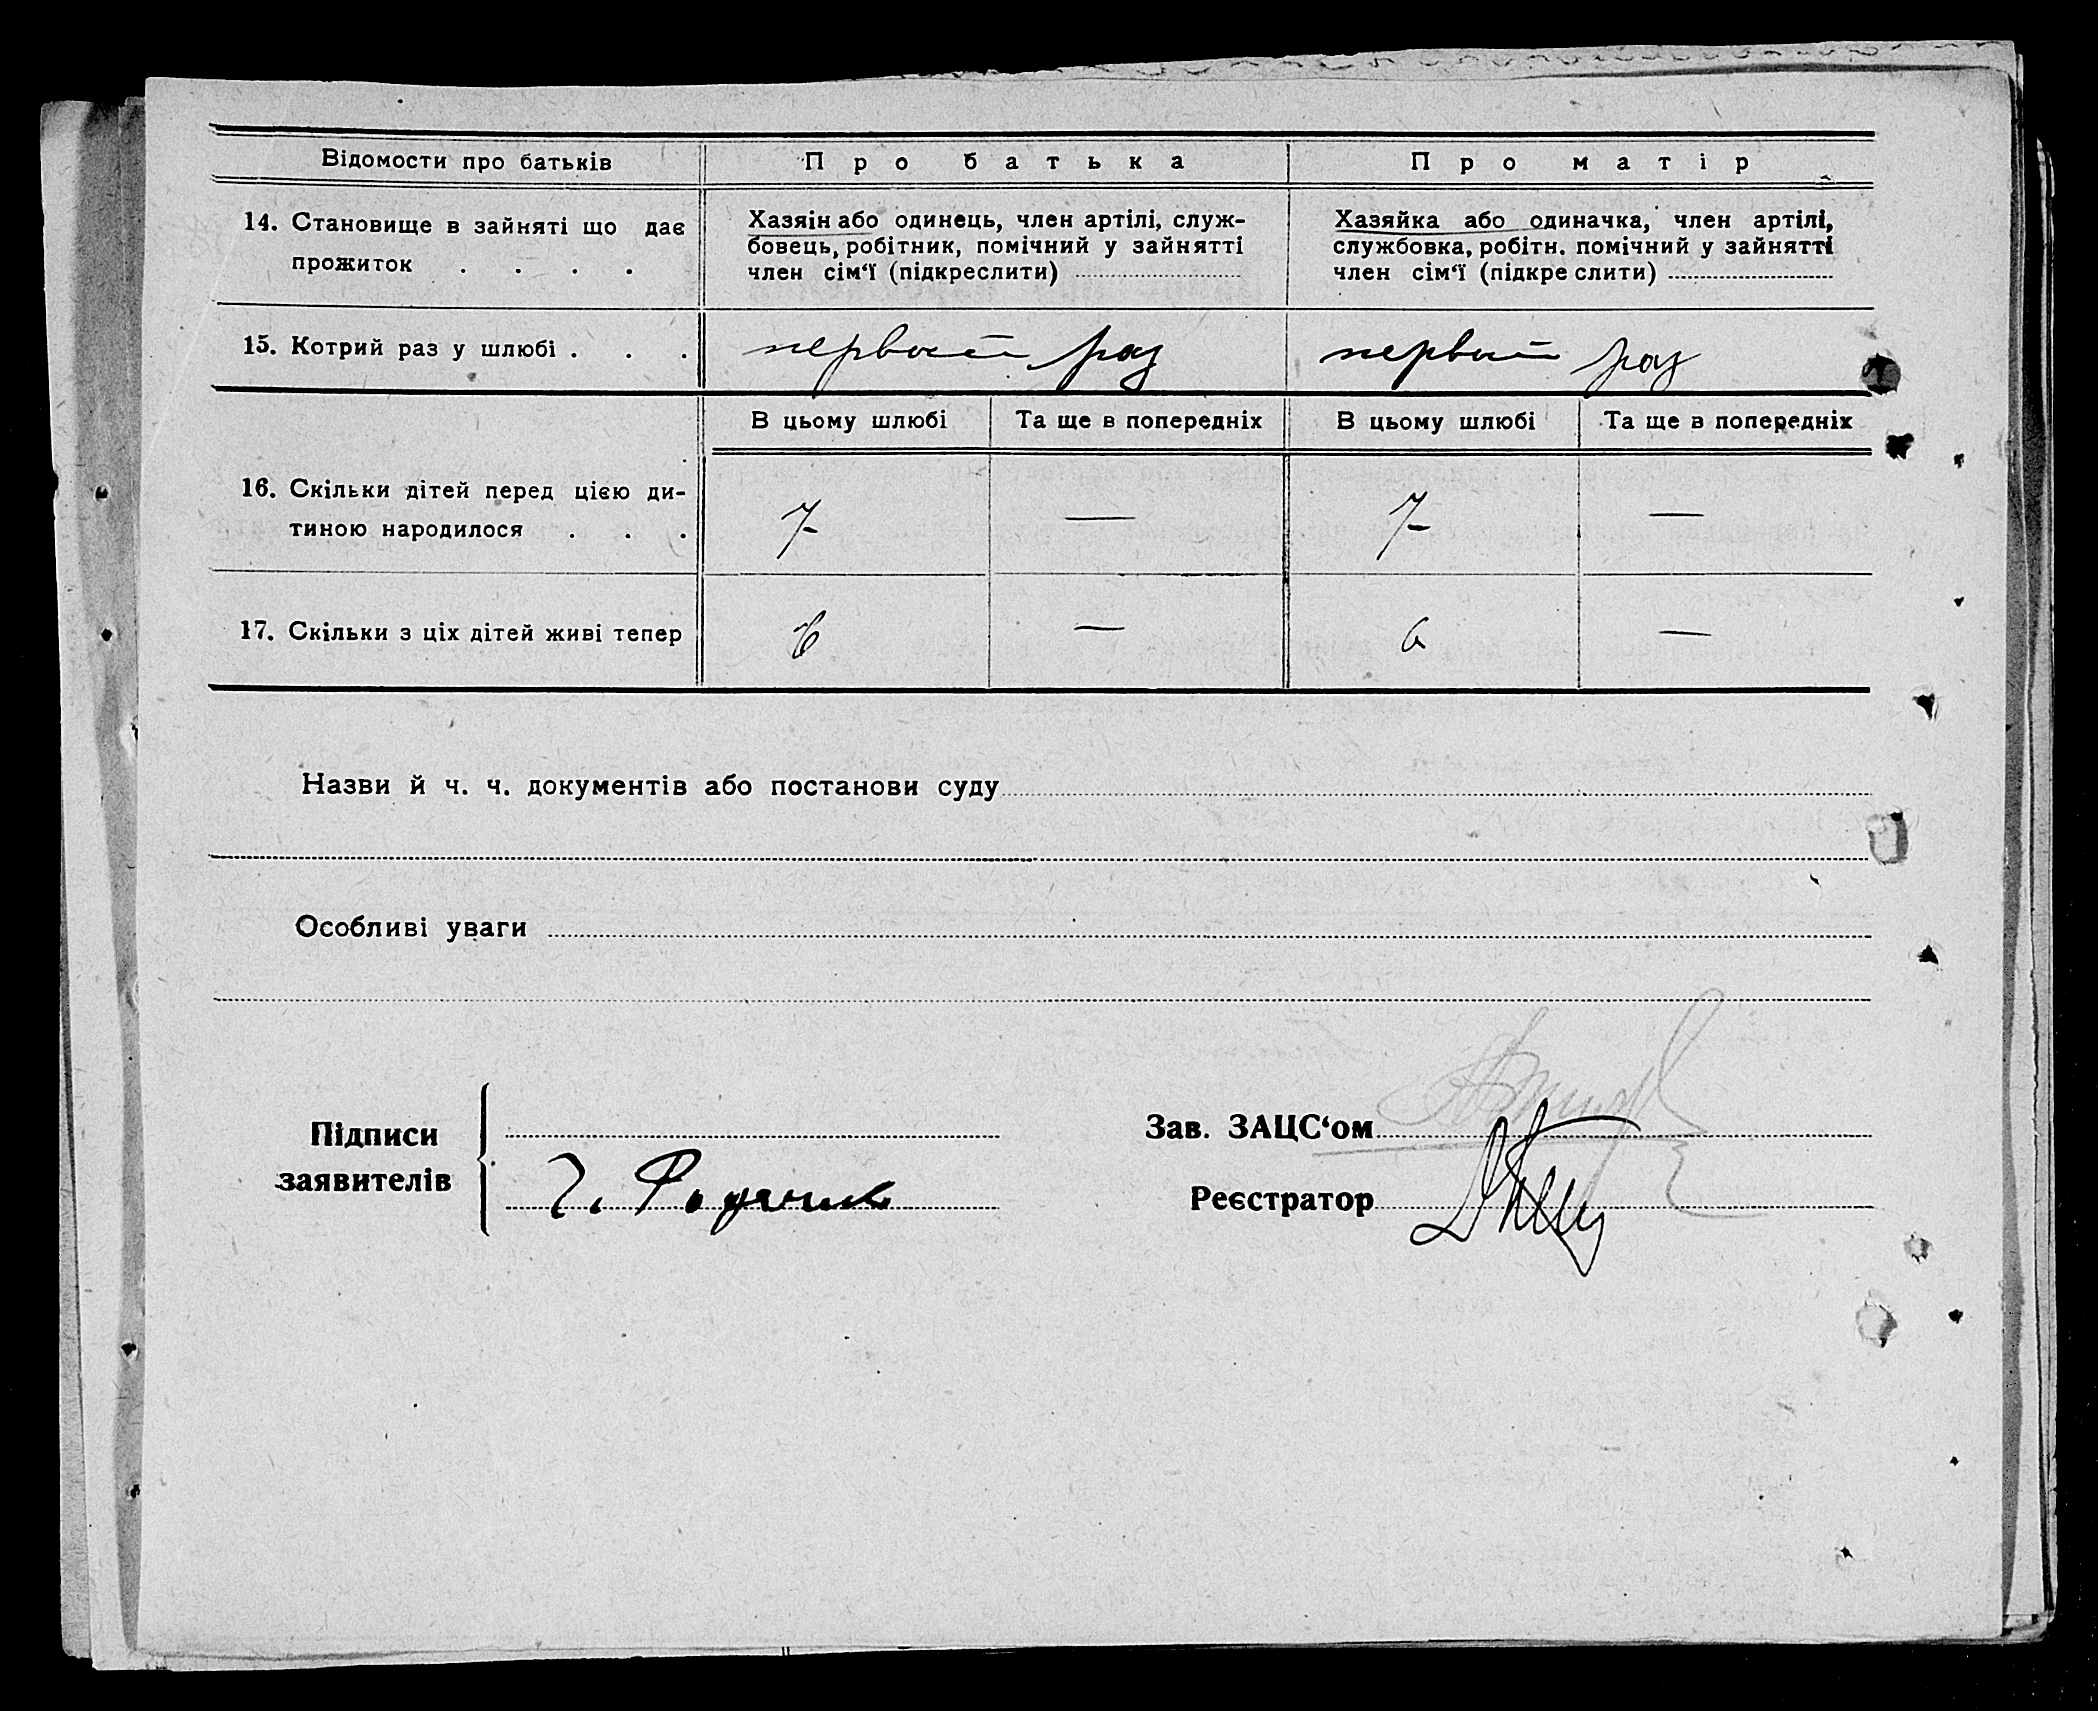 Відомости про батьків
Про батька
Про матір
14. Становище в зайняті що дає
прожиток . . . .
Хазяін або одинець, член артілі, служ-
бовець, робітник, помічний у зайнятті
член сім‘ї (підкреслити)
Хазяйка або одиначка, член артілі,
службовка, робітн. помічний у зайнятті
член сім‘ї (підкре слити)
15. Котрий раз у шлюбі . . .
первый раз
первый раз
В цьому шлюбі
Та ще в попередніх
В цьому шлюбі
Та ще в попередніх
16. Скільки дітей перед цією ди-
тиною народилося . . .
7
—
7
—
17. Скільки з ціх дітей живі тепер
6
—
6
—
Назви й ч. ч. документів або постанови суду
Особливі уваги
Підписи
заявителів
Зав. ЗАЦС‘ом
Реєстратор